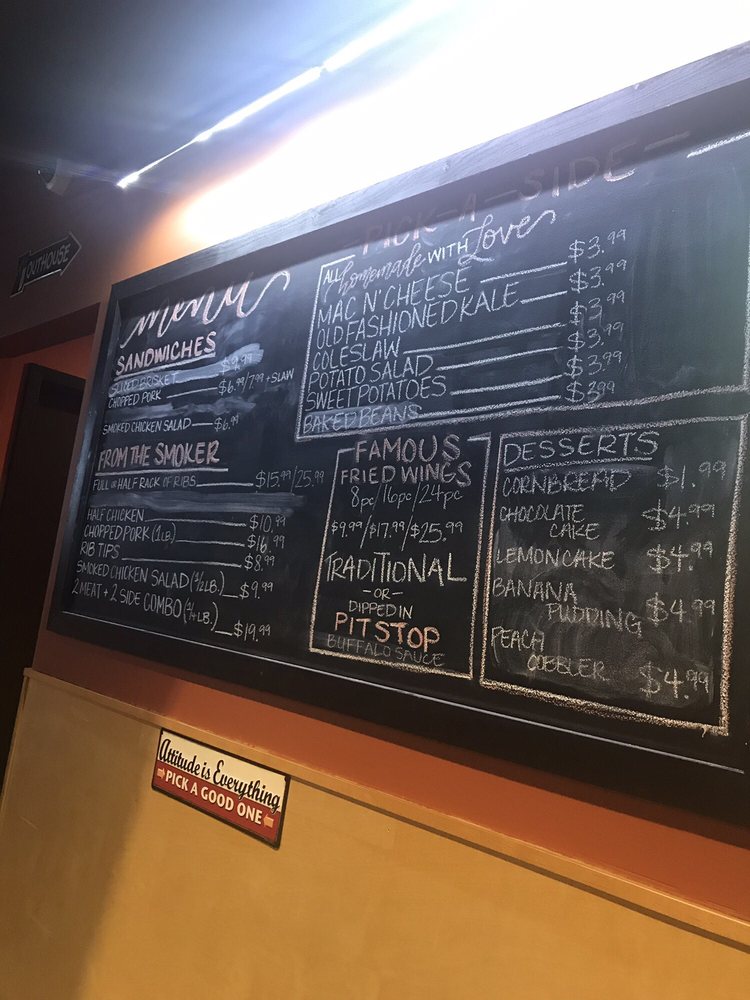 OUTHOUSE
menu
SANDWICHES
SLICED BRISKET $9.99
CHOPPED PORK $6.99/7.99 + SLAW
SMOKED CHICKEN SALAD $6.99
FROM THE SMOKER
FULL OR HALF RACK OF RIBS $15.99/25.99
HALF CHICKEN $10.99
CHOPPED PORK (1LB.) $16.99
RIB TIPS $8.99
SMOKED CHICKEN SALAD (1/2LB.) $9.99
2 MEAT + 2 SIDE COMBO (1/4LB.) $19.99
PICK-A-SIDE
ALL homemade WITH Love
MAC N' CHEESE $3.99
OLD FASHIONED KALE $3.99
COLESLAW $3.99
POTATO SALAD $3.99
SWEET POTATOES $3.99
BAKED BEANS $3.99
FAMOUS
FRIED WINGS
8pc/16pc/24pc
$9.99/$17.99/$25.99
TRADITIONAL
-OR-
DIPPED IN
PITSTOP
BUFFALO SAUCE
DESSERTS
CORNBREAD $1.99
CHOCOLATE
CAKE $4.99
LEMON CAKE $4.99
BANANA
PUDDING $4.99
PEACH
COBBLER $4.99
Attitude is Everything
PICK A GOOD ONE